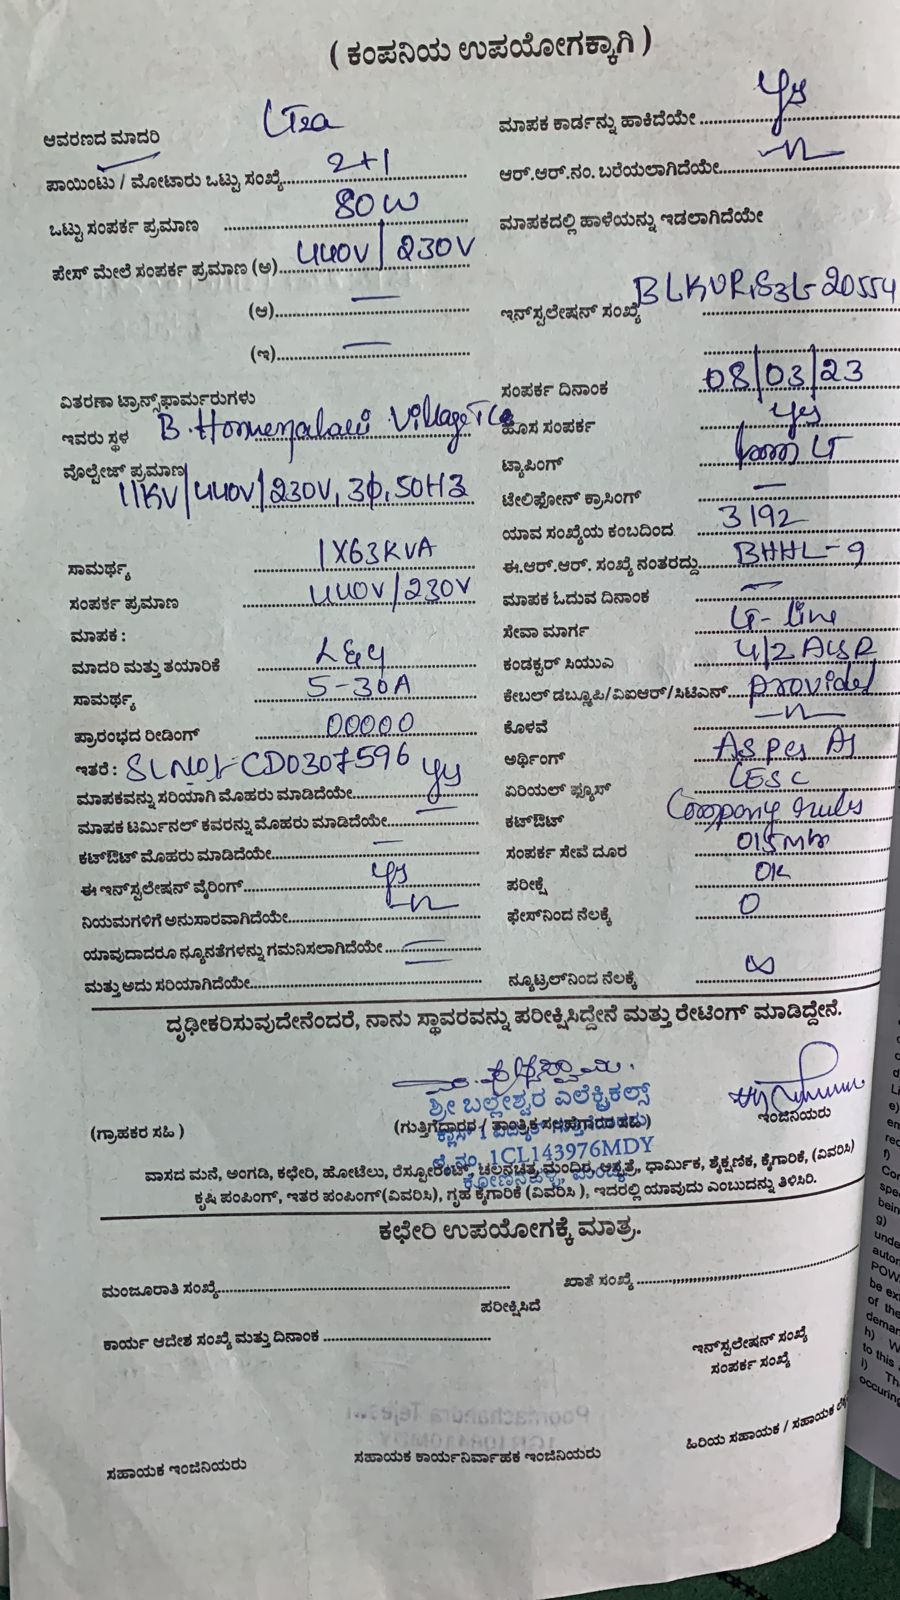 ( ಕಂಪನಿಯ ಉಪಯೋಗಕ್ಕಾಗಿ )
ಆವರಣದ ಮಾದರಿ
ಪಾಯಿಂಟು / ಮೋಟಾರು ಒಟ್ಟು ಸಂಖ್ಯೆ 2+1
ಒಟ್ಟು ಸಂಪರ್ಕ ಪ್ರಮಾಣ 80W
ಪೇಸ್ ಮೇಲೆ ಸಂಪರ್ಕ ಪ್ರಮಾಣ (ಅ) 440V/230V
(ಆ) —
(ಇ) —
ವಿತರಣಾ ಟ್ರಾನ್ಸ್‌ಫಾರ್ಮರುಗಳು
ಇವರು ಸ್ಥಳ B. Village
ವೊಲ್ಟೇಜ್ ಪ್ರಮಾಣ 11KV/440V/230V, 3ϕ, 50HZ
ಸಾಮರ್ಥ್ಯ 1X63KVA
ಸಂಪರ್ಕ ಪ್ರಮಾಣ 440V/230V
ಮಾಪಕ :
ಮಾದರಿ ಮತ್ತು ತಯಾರಿಕೆ
ಸಾಮರ್ಥ್ಯ 5-30A
ಪ್ರಾರಂಭದ ರೀಡಿಂಗ್ 00000
ಇತರೆ : Sl No:- CD0307596
ಮಾಪಕವನ್ನು ಸರಿಯಾಗಿ ಮೊಹರು ಮಾಡಿದೆಯೇ Yes
ಮಾಪಕ ಟರ್ಮಿನಲ್ ಕವರನ್ನು ಮೊಹರು ಮಾಡಿದೆಯೇ —
ಕಟ್‌ಔಟ್ ಮೊಹರು ಮಾಡಿದೆಯೇ —
ಈ ಇನ್‌ಸ್ಟಲೇಷನ್ ವೈರಿಂಗ್ Yes
ನಿಯಮಗಳಿಗೆ ಅನುಸಾರವಾಗಿದೆಯೇ —n—
ಯಾವುದಾದರೂ ನ್ಯೂನತೆಗಳನ್ನು ಗಮನಿಸಲಾಗಿದೆಯೇ —
ಮತ್ತು ಅದು ಸರಿಯಾಗಿದೆಯೇ
ಮಾಪಕ ಕಾರ್ಡನ್ನು ಹಾಕಿದೆಯೇ Yes
ಆರ್.ಆರ್.ನಂ. ಬರೆಯಲಾಗಿದೆಯೇ —n—
ಮಾಪಕದಲ್ಲಿ ಹಾಳೆಯನ್ನು ಇಡಲಾಗಿದೆಯೇ
ಇನ್‌ಸ್ಟಲೇಷನ್ ಸಂಖ್ಯೆ
ಸಂಪರ್ಕ ದಿನಾಂಕ 08/03/23
ಹೊಸ ಸಂಪರ್ಕ Yes
ಟ್ಯಾಪಿಂಗ್
ಟೇಲಿಫೋನ್ ಕ್ರಾಸಿಂಗ್ —
ಯಾವ ಸಂಖ್ಯೆಯ ಕಂಬದಿಂದ 3192
ಈ.ಆರ್.ಆರ್. ಸಂಖ್ಯೆ ನಂತರದ್ದು BHHL-9
ಮಾಪಕ ಓದುವ ದಿನಾಂಕ —
ಸೇವಾ ಮಾರ್ಗ LT-line
ಕಂಡಕ್ಟರ್ ಸಿಯುಎ
ಕೇಬಲ್ ಡಬ್ಲ್ಯೂಪಿ/ವಿಐಆರ್/ಸಿಟಿಎನ್ Provided
ಕೊಳವೆ —n—
ಅರ್ಥಿಂಗ್ As per
ಏರಿಯಲ್ ಫ್ಯೂಸ್ CESC
ಕಟ್‌ಔಟ್ Company rules
ಸಂಪರ್ಕ ಸೇವೆ ದೂರ
ಪರೀಕ್ಷೆ OK
ಫೇಸ್‌ನಿಂದ ನೆಲಕ್ಕೆ 0
ನ್ಯೂಟ್ರಲ್‌ನಿಂದ ನೆಲಕ್ಕೆ ∞
ದೃಢೀಕರಿಸುವುದೇನೆಂದರೆ, ನಾನು ಸ್ಥಾವರವನ್ನು ಪರೀಕ್ಷಿಸಿದ್ದೇನೆ ಮತ್ತು ರೇಟಿಂಗ್ ಮಾಡಿದ್ದೇನೆ.
ಶ್ರೀ ಬಲ್ಲೇಶ್ವರ ಎಲೆಕ್ಟ್ರಿಕಲ್ಸ್
(ಗ್ರಾಹಕರ ಸಹಿ )
(ಗುತ್ತಿಗೆದಾರರ / ತಾಂತ್ರಿಕ ಸಲಹೆಗಾರರ ಸಹಿ)
ಇಂಜಿನಿಯರು
ಲೈ.ನಂ. 1CL143976MDY
ವಾಸದ ಮನೆ, ಅಂಗಡಿ, ಕಛೇರಿ, ಹೋಟೆಲು, ರೆಸ್ಟೋರೆಂಟ್, ಚಲನಚಿತ್ರ ಮಂದಿರ, ಆಸ್ಪತ್ರೆ, ಧಾರ್ಮಿಕ, ಶೈಕ್ಷಣಿಕ, ಕೈಗಾರಿಕೆ, (ವಿವರಿಸಿ)
ಕೃಷಿ ಪಂಪಿಂಗ್, ಇತರ ಪಂಪಿಂಗ್(ವಿವರಿಸಿ), ಗೃಹ ಕೈಗಾರಿಕೆ (ವಿವರಿಸಿ ), ಇದರಲ್ಲಿ ಯಾವುದು ಎಂಬುದನ್ನು ತಿಳಿಸಿರಿ.
ಕಛೇರಿ ಉಪಯೋಗಕ್ಕೆ ಮಾತ್ರ.
ಮಂಜೂರಾತಿ ಸಂಖ್ಯೆ
ಖಾತೆ ಸಂಖ್ಯೆ
ಪರೀಕ್ಷಿಸಿದೆ
ಕಾರ್ಯ ಆದೇಶ ಸಂಖ್ಯೆ ಮತ್ತು ದಿನಾಂಕ
ಇನ್‌ಸ್ಟಲೇಷನ್ ಸಂಖ್ಯೆ
ಸಂಪರ್ಕ ಸಂಖ್ಯೆ
ಸಹಾಯಕ ಇಂಜಿನಿಯರು
ಸಹಾಯಕ ಕಾರ್ಯನಿರ್ವಾಹಕ ಇಂಜಿನಿಯರು
ಹಿರಿಯ ಸಹಾಯಕ / ಸಹಾಯಕ